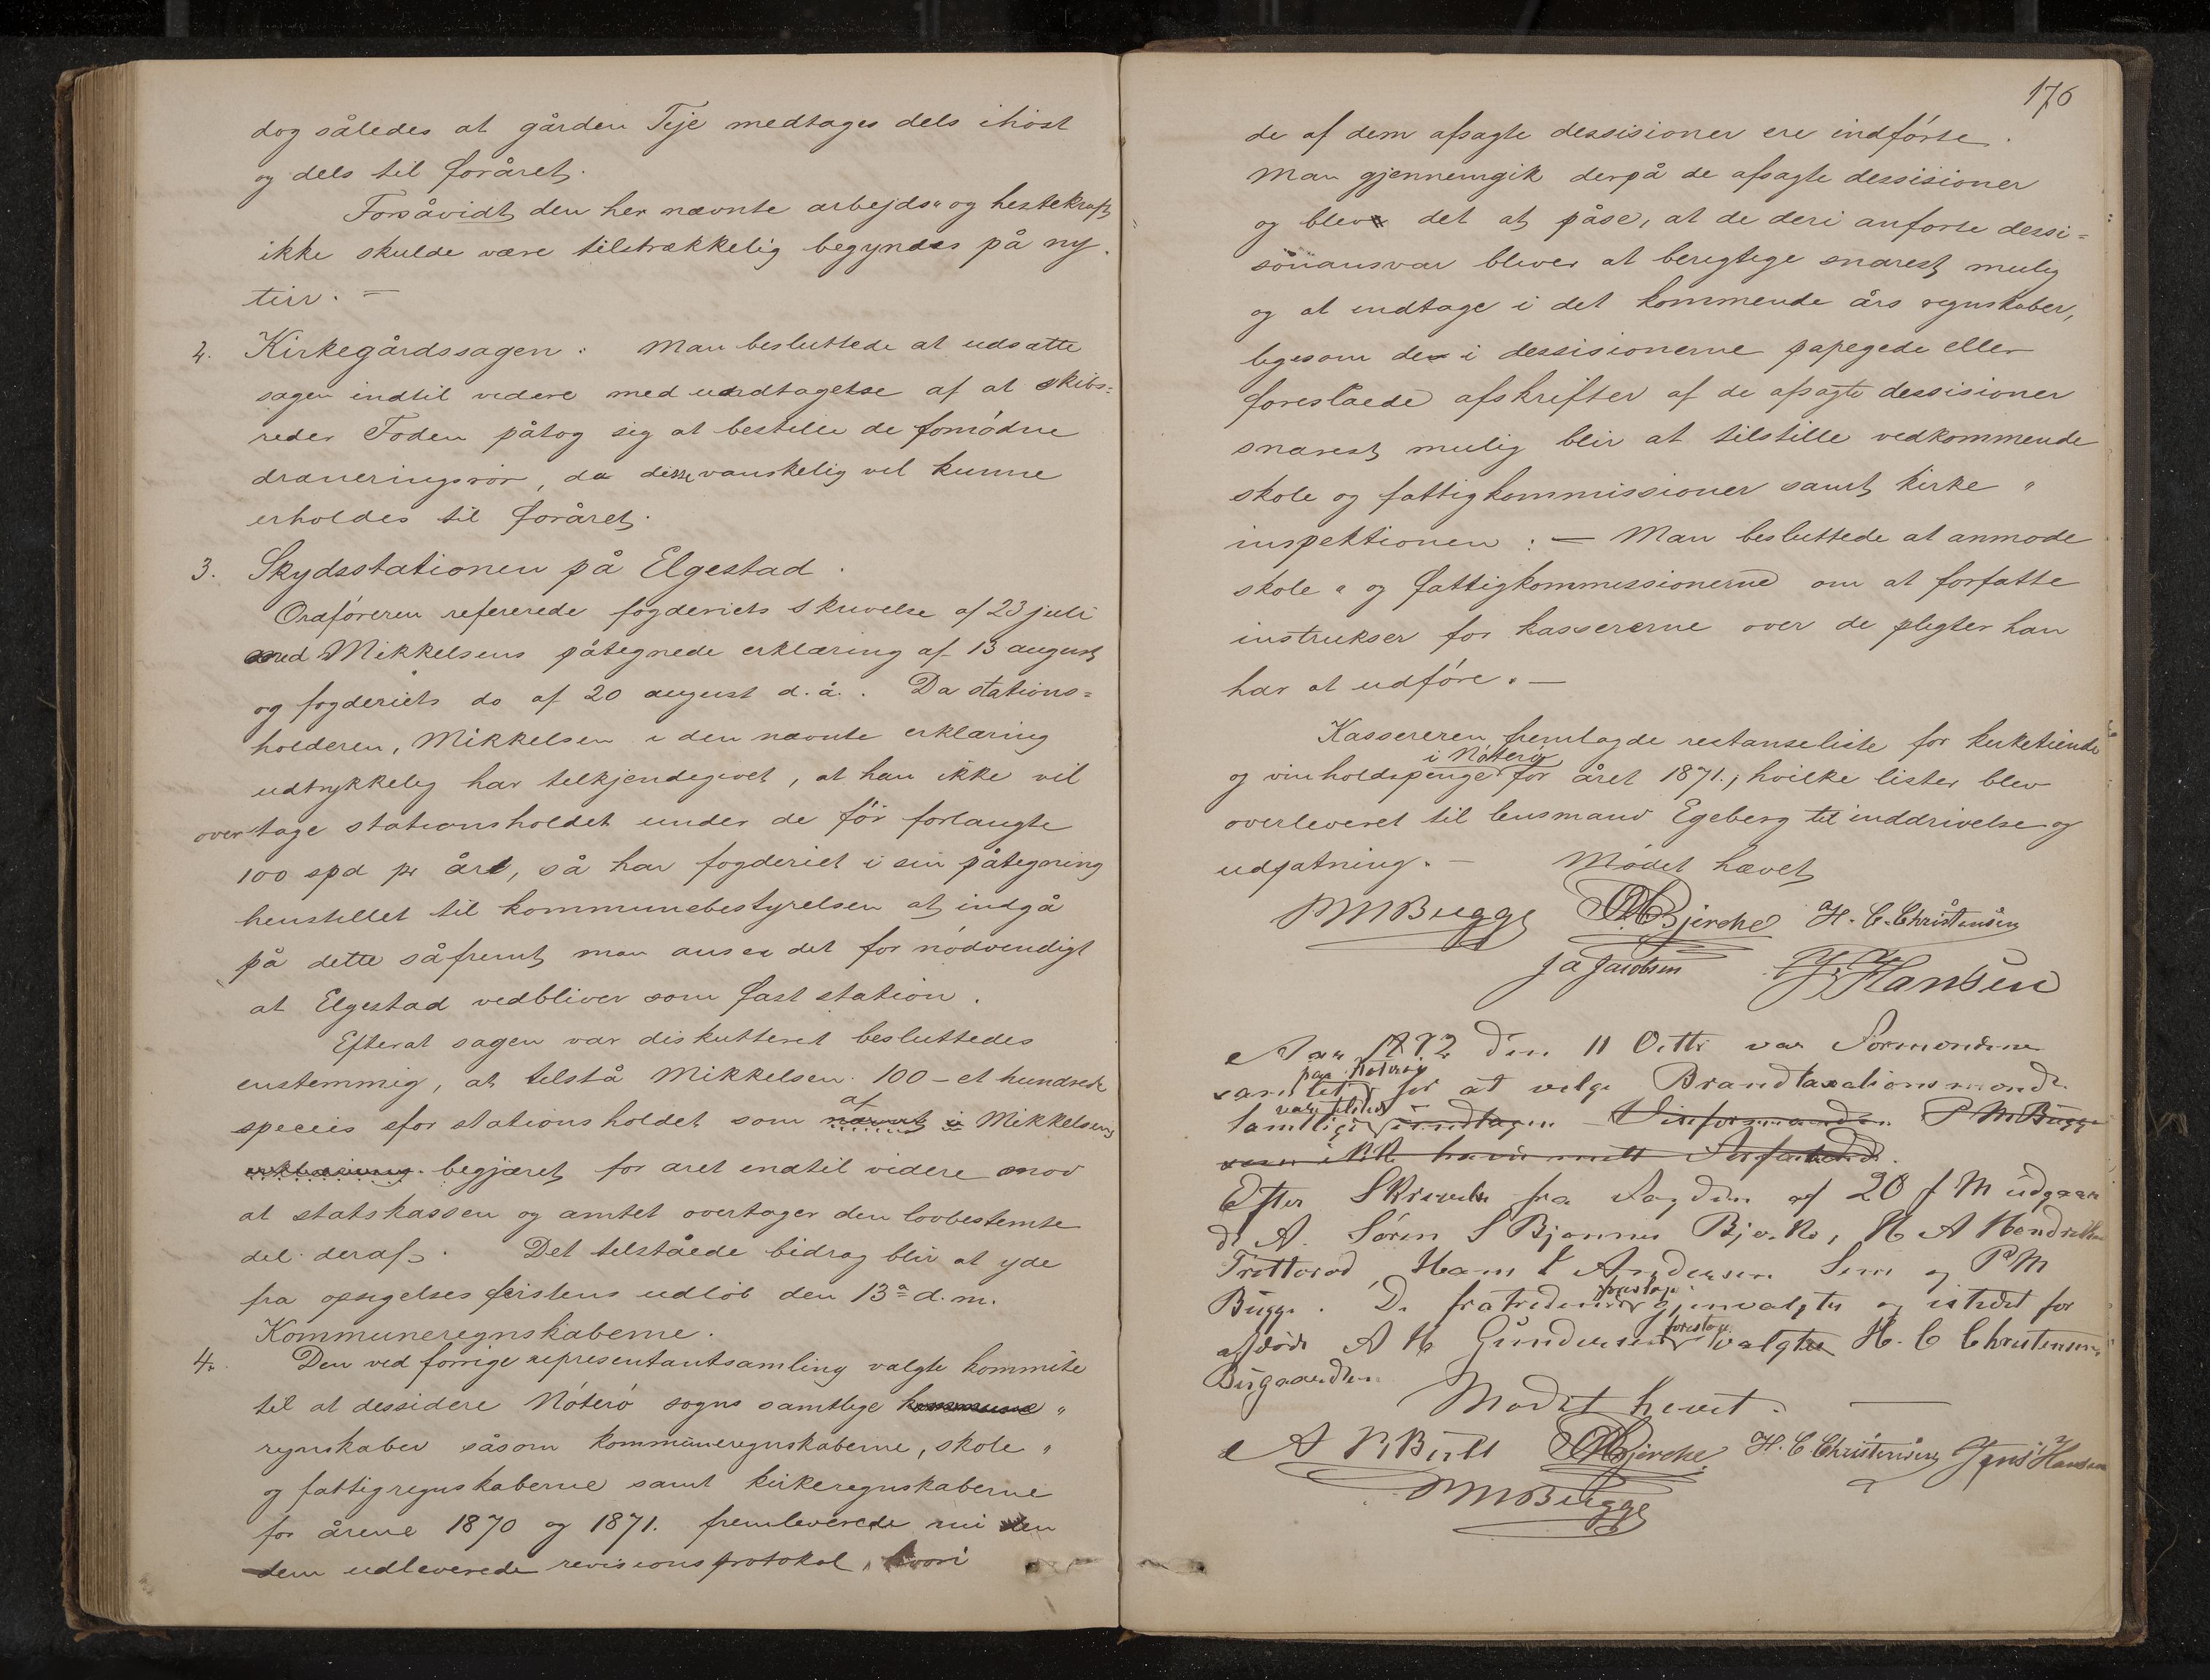 dog således at gården Teje medtages dels ihöst
og dels til foråret.
Forsåvidt den her nævnte arbejds" og hestekraft
ikke skulde være tilstrækkelig begyndes på ny
tur. =
2. Kirkegårdssagen: Man besluttede at udsætte
sagen indtil videre med undtagelse af at skibs=
reder Foden påtog sig at bestille de fornödne
draneringsrör, da disse vanskelig vil kunne
erholdes til foråret.
3. Skydsstationen på Elgestad.
Ordföreren refererede fogderiets skrivelse af 23 juli
med Mikkelsens påtegnede erklæring af 13 august
og fogderiets do af 20 august d. å. Da stations=
holderen, Mikkelsen i den nævnte erklæring
udtrykkelig har tilkjendegivet, at han ikke vil
overtage stationsholdet under de för forlangte
100 spd pr året, så har fogderiet i sin påtegning
henstillet til kommunebestyrelsen at indgå
på dette såfremt man anser det for nödvendigt
at Elgestad vedbliver som fast station.
Efterat sagen var diskutteret besluttedes
enstemmig, at tilstå Mikkelsen 100 – et hundrede
species for stationsholdet som af nævnt i Mikkelsens
erklæring begjæret for året indtil videre mod
at statskassen og amtet overtager den lovbestemte
del deraf. Det tilståede bidrag blir at yde
fra opsigelsesfristens udlöb den 13de d. m.
Kommuneregnskaberne.
4. Den ved forrige representantsamling valgte kommite
til at dessidere Nöterö sogns samtlige kommune "
regnskaber såsom kommuneregnskaberne, skole "
og fattigregnskaberne samt kirkeregnskaberne
for årene 1870 og 1871. fremleverede nu den
dem udleverede revisionsprotokol, hvori
176
de af dem afsagte dessisioner ere indförte.
Man gjennemgik derpå de afsagte dessisioner
og blev det at påse, at de deri anförte dessi=
sönansvar bliver at berigtige snarest mulig
og at indtage i det kommende års regnskaber,
ligesom de i dessisionerne papegede eller
foreslåede afskrifter af de afsagte dessisioner
snarest mulig blir at tilstille vedkommende
skole og fattigkommissioner samt kirke "
inspektionen: — Man besluttede at anmode
skole " og fattigkommissionerne om at forfatte
instrukser for kassererne over de pligter han
har at udföre. —
Kassereren fremlagde restanseliste for kirketiende
og vinholdspenge i Nöterö for året 1871., hvilke lister blev
overleveret til lensmand Egeberg til inddrivelse og
udpatning. — Mödet hævet
P M Bugge O Bjerche H. C. Christensen
J A Jacobsen J. Hansen
Aar 1872 den 11 Octbr var Formendene
samlet paa Noterøy for at velge Brandtaxationsmend.
Samtlige var tilsted undtagen Viseformanden P M Bugge
som ikke havde
Efter Skrivelse fra Fogden af 20 f M udgaar
d A. Søren S Bjønnes H A Hendriksen
Hans Andersen Sem og P M
Bugge. De fratredende foreslaas gjenvalgte og istedet for
afdøde A H Gundersen foreslaas valgte H. C Christensen
Bugaarden
Modet hevet. —
A Bull O Bjerche H. C. Christensen Jens Hansen
P M Bugge